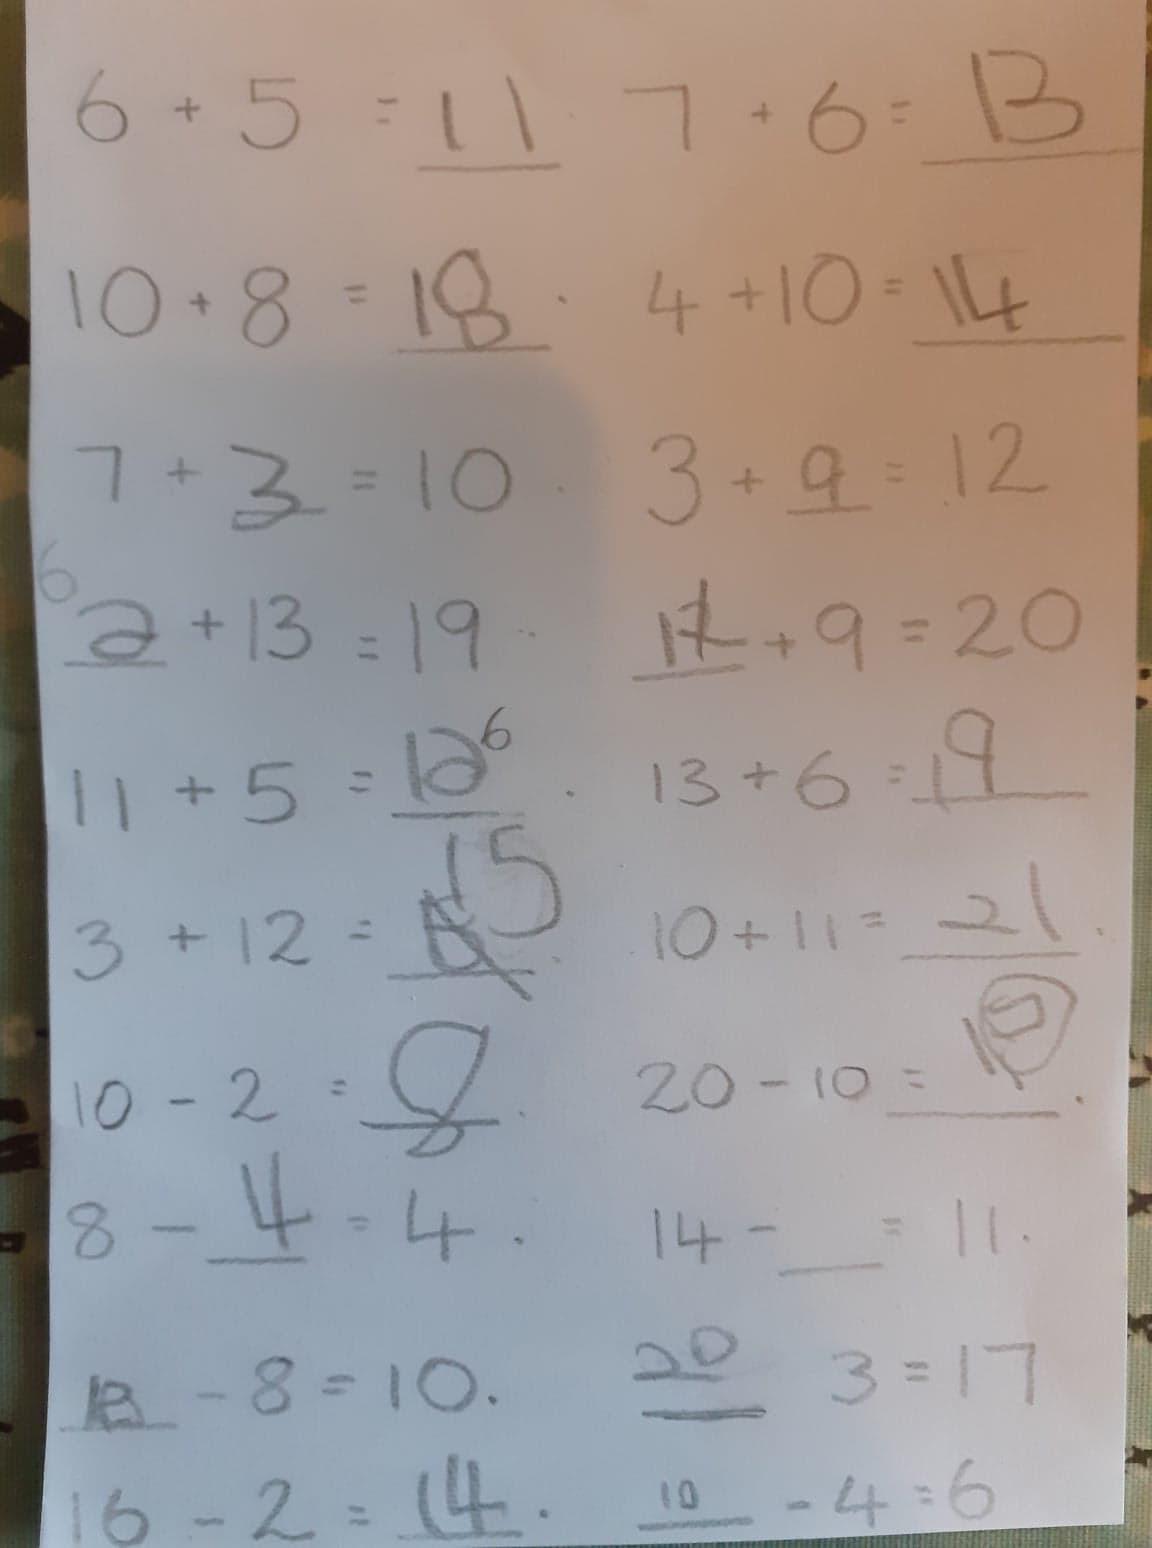 6 + 5 = 11 7 + 6 = 13
10 + 8 = 18 . 4 + 10 = 14
7 + 3 = 10 . 3 + 9 = 12
6
2 + 13 = 19 + 9 = 20
6
11 + 5 = 12 . 13 + 6 = 19
15
3 + 12 = . 10 + 11 = 21 .
10 - 2 = 8 . 20 - 10 = 10 .
8 - 4 = 4 . 14 - __ = 11 .
18 - 8 = 10 . 20 3 = 17
16 - 2 = 14 . 10 - 4 = 6